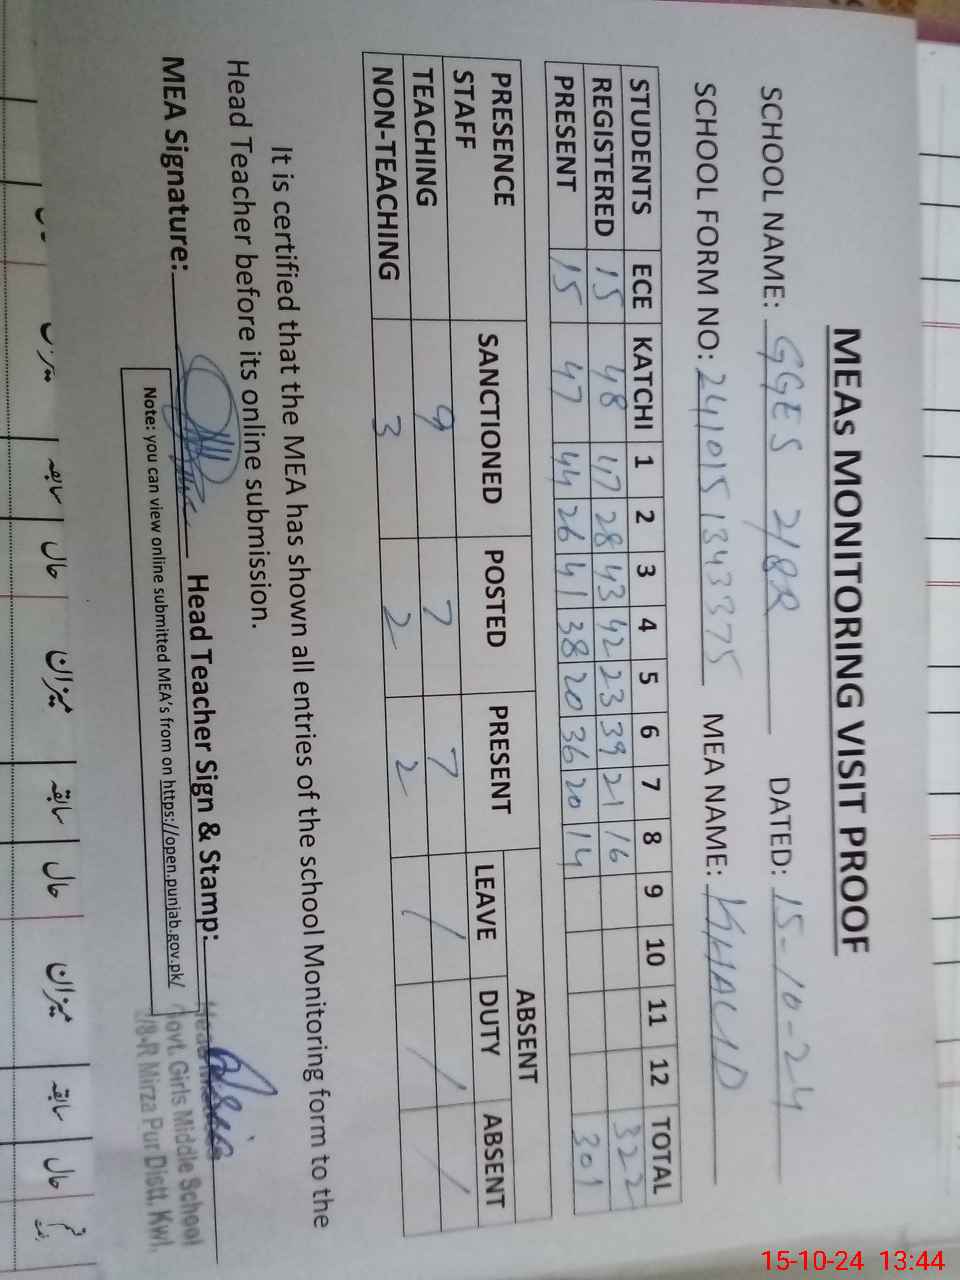 MEAs MONITORING VISIT PROOF
SCHOOL NAME: GGES 2/8R DATED: 15-10-24
SCHOOL FORM NO: 241015134 3375 MEA NAME: KHALID
STUDENTS ECE KATCHI 1 2 3 4 5 6 7 8 9 10 11 12 TOTAL
REGISTERED 15 48 47 28 43 42 23 39 21 16 322
PRESENT 15 47 44 26 41 38 20 36 20 14 301
PRESENCE SANCTIONED POSTED PRESENT ABSENT
STAFF LEAVE DUTY ABSENT
TEACHING 9 7 7 / / /
NON-TEACHING 3 2 2
It is certified that the MEA has shown all entries of the school Monitoring form to the
Head Teacher before its online submission.
MEA Signature: Head Teacher Sign & Stamp:
Note: you can view online submitted MEA's from on https://open.punjab.gov.pk/
Head
Govt. Girls Middle School
2/8-R Mirza Pur Distt. Kwl.
سابقہ حال میزان سابقہ حال میزان سابقہ حال
15-10-24 13:44